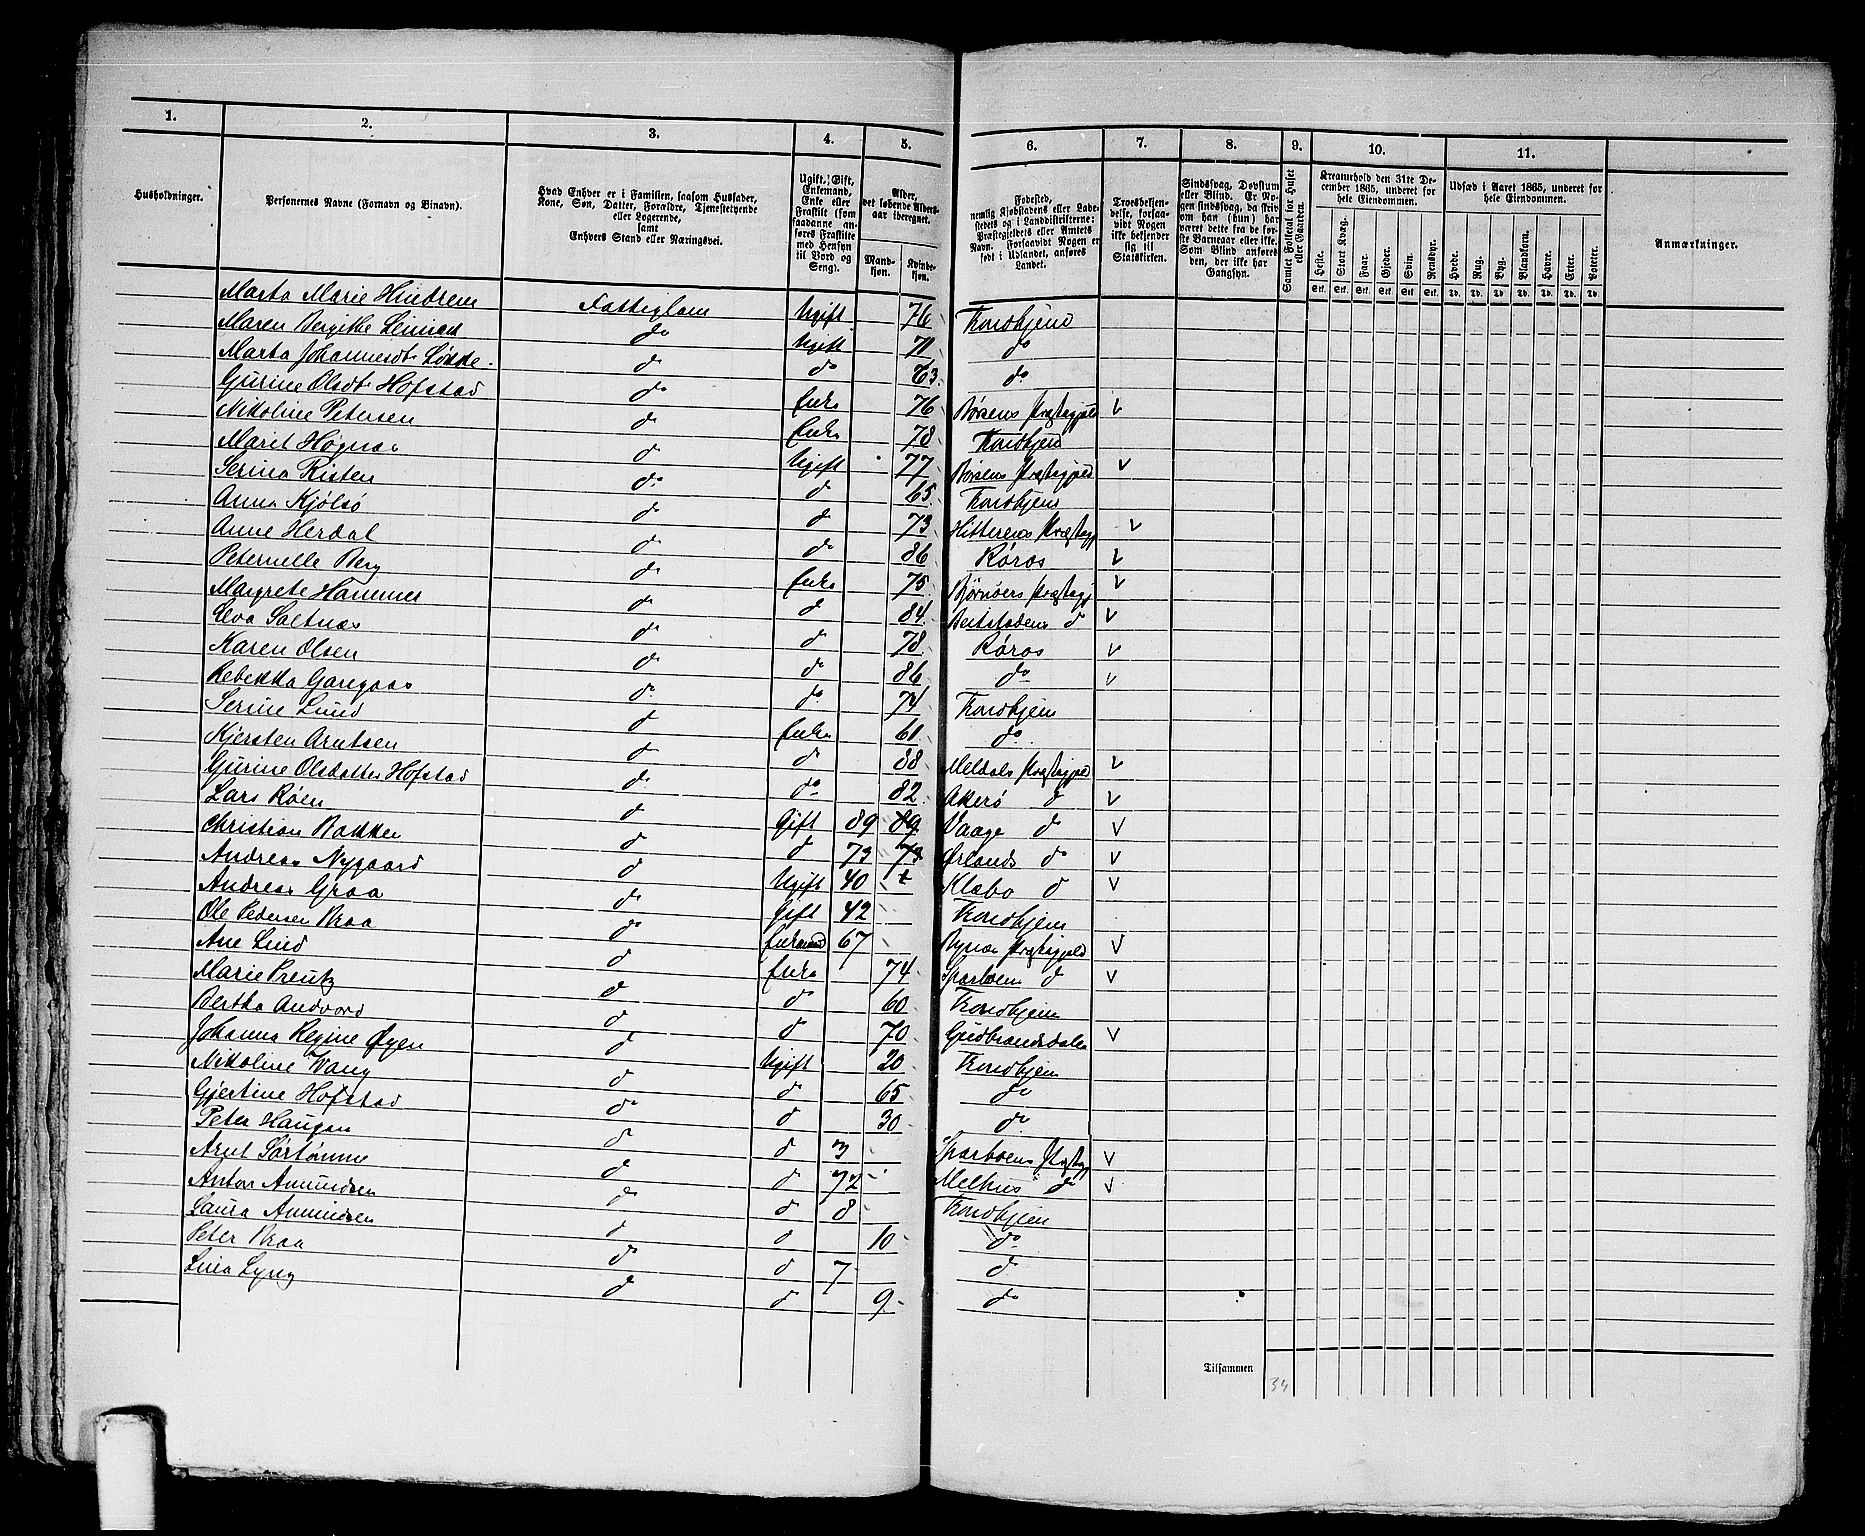 1. 2. 3. 4. 5. 6. 7. 8. 9. 10. 11.
Husholdninger.
Personernes Navne (Fornavn og Binavn).
Hvad Enhver er i Familien, saasom Husfader, Kone, Søn, Datter, Forældre, Tjenestetyende eller Logerende, samt Enhvers Stand eller Næringsvei.
Ugift, Gift, Enkemand, Enke eller Fraskilt (som saadanne anføres Fraskilte med Hensyn til Bord og Seng).
Alder, det løbende Aldersaar iberegnet.
Mandkjøn.
Kvindekjøn.
Fødested, nemlig Kjøbstadens eller Ladestedets og i Landdistrikterne: Præstegjeldets eller Amtets Navn. Forsaavidt Nogen er født i Udlandet, anføres Landet.
Troesbekjendelse, forsaavidt Nogen ikke bekjender sig til Statskirken.
Sindssvag, Døvstum eller Blind. Er Nogen sindssvag, da skriv om han (hun) har været dette fra de første Barneaar eller ikke. Som Blind anføres den, der ikke har Gangsyn.
Samlet Folketal for Huset eller Gaarden.
Kreaturhold den 31te December 1865, underet for hele Eiendommen.
Heste. Stort Kvæg. Faar. Gjeder. Svin. Rensdyr.
Stk. Stk. Stk. Stk. Stk. Stk.
Udsæd i Aaret 1865, underet for hele Eiendommen.
Hvede. Rug. Byg. Blandkorn. Havre. Erter. Poteter.
Td. Td. Td. Td. Td. Td. Td.
Anmærkninger.
Marta Marie Hindrem Fattiglem Ugift 76 Trondhjem
Maren Bergitte do Ugift 71 do
Marta Johannesdt Løkke do do 63 do
Gurine Olsdt Hofstad do Enke 76 Børsens Præstegjeld V
Nikoline Petersen do Enke 78 Trondhjem
Marit Høgnæs d Ugift 77 Børsens Præstegjeld V
Serina Risten do d 65 Trondhjem
Anna Kjølsø do d 73 Hitterens Præstegj V
Anne Herdal do do 86 Røros V
Peternelle Berg do Enke 75 Bjørnørs Præstegj V
Margrete Hammer do d 84 Beitstadens d V
Eva Saltnæs do d 78 Røros V
Karen Olsen do do 86 do V
Rebekka Garegaas do do 74 Trondhjem
Serine Lund d Enke 61 do
Kjersten Arntsen do d 88 Meldals Præstegjeld V
Gurine Olsdatter Hofstad do do 82 Akerø d V
Lars Røen d Gift 89 89 Vaage d V
Christian Bakken d d 73 73 Ørlands do V
Andreas Nygaard d Ugift 40 Klæbo d V
Andreas Graa do Gift 42 Trondhjem
Ole Pedersen Braa do Enkemand 67 Bynæs Præstegjeld V
Ane Lund d Enke 74 Sparboens d V
Marie Preutz d d 60 Trondhjem
Bertha Andvord d d 70 Gudbrandsdalen V
Johanna Regine Øyen d Ugift 20 Trondhjem
Nikoline Wang d d 65 do
Gjertine Hofstad do d 30 do
Peter Haugan d d 3 Sparboens Præstegj V
Arnt Sørtømme d d 72 Melhus do V
Anton Amundsen do d 8 Trondhjem
Laura Amundsen d d 10 do
Peter Braa do d 7 d
Lina Lyng d d 9 do
Tilsammen 34